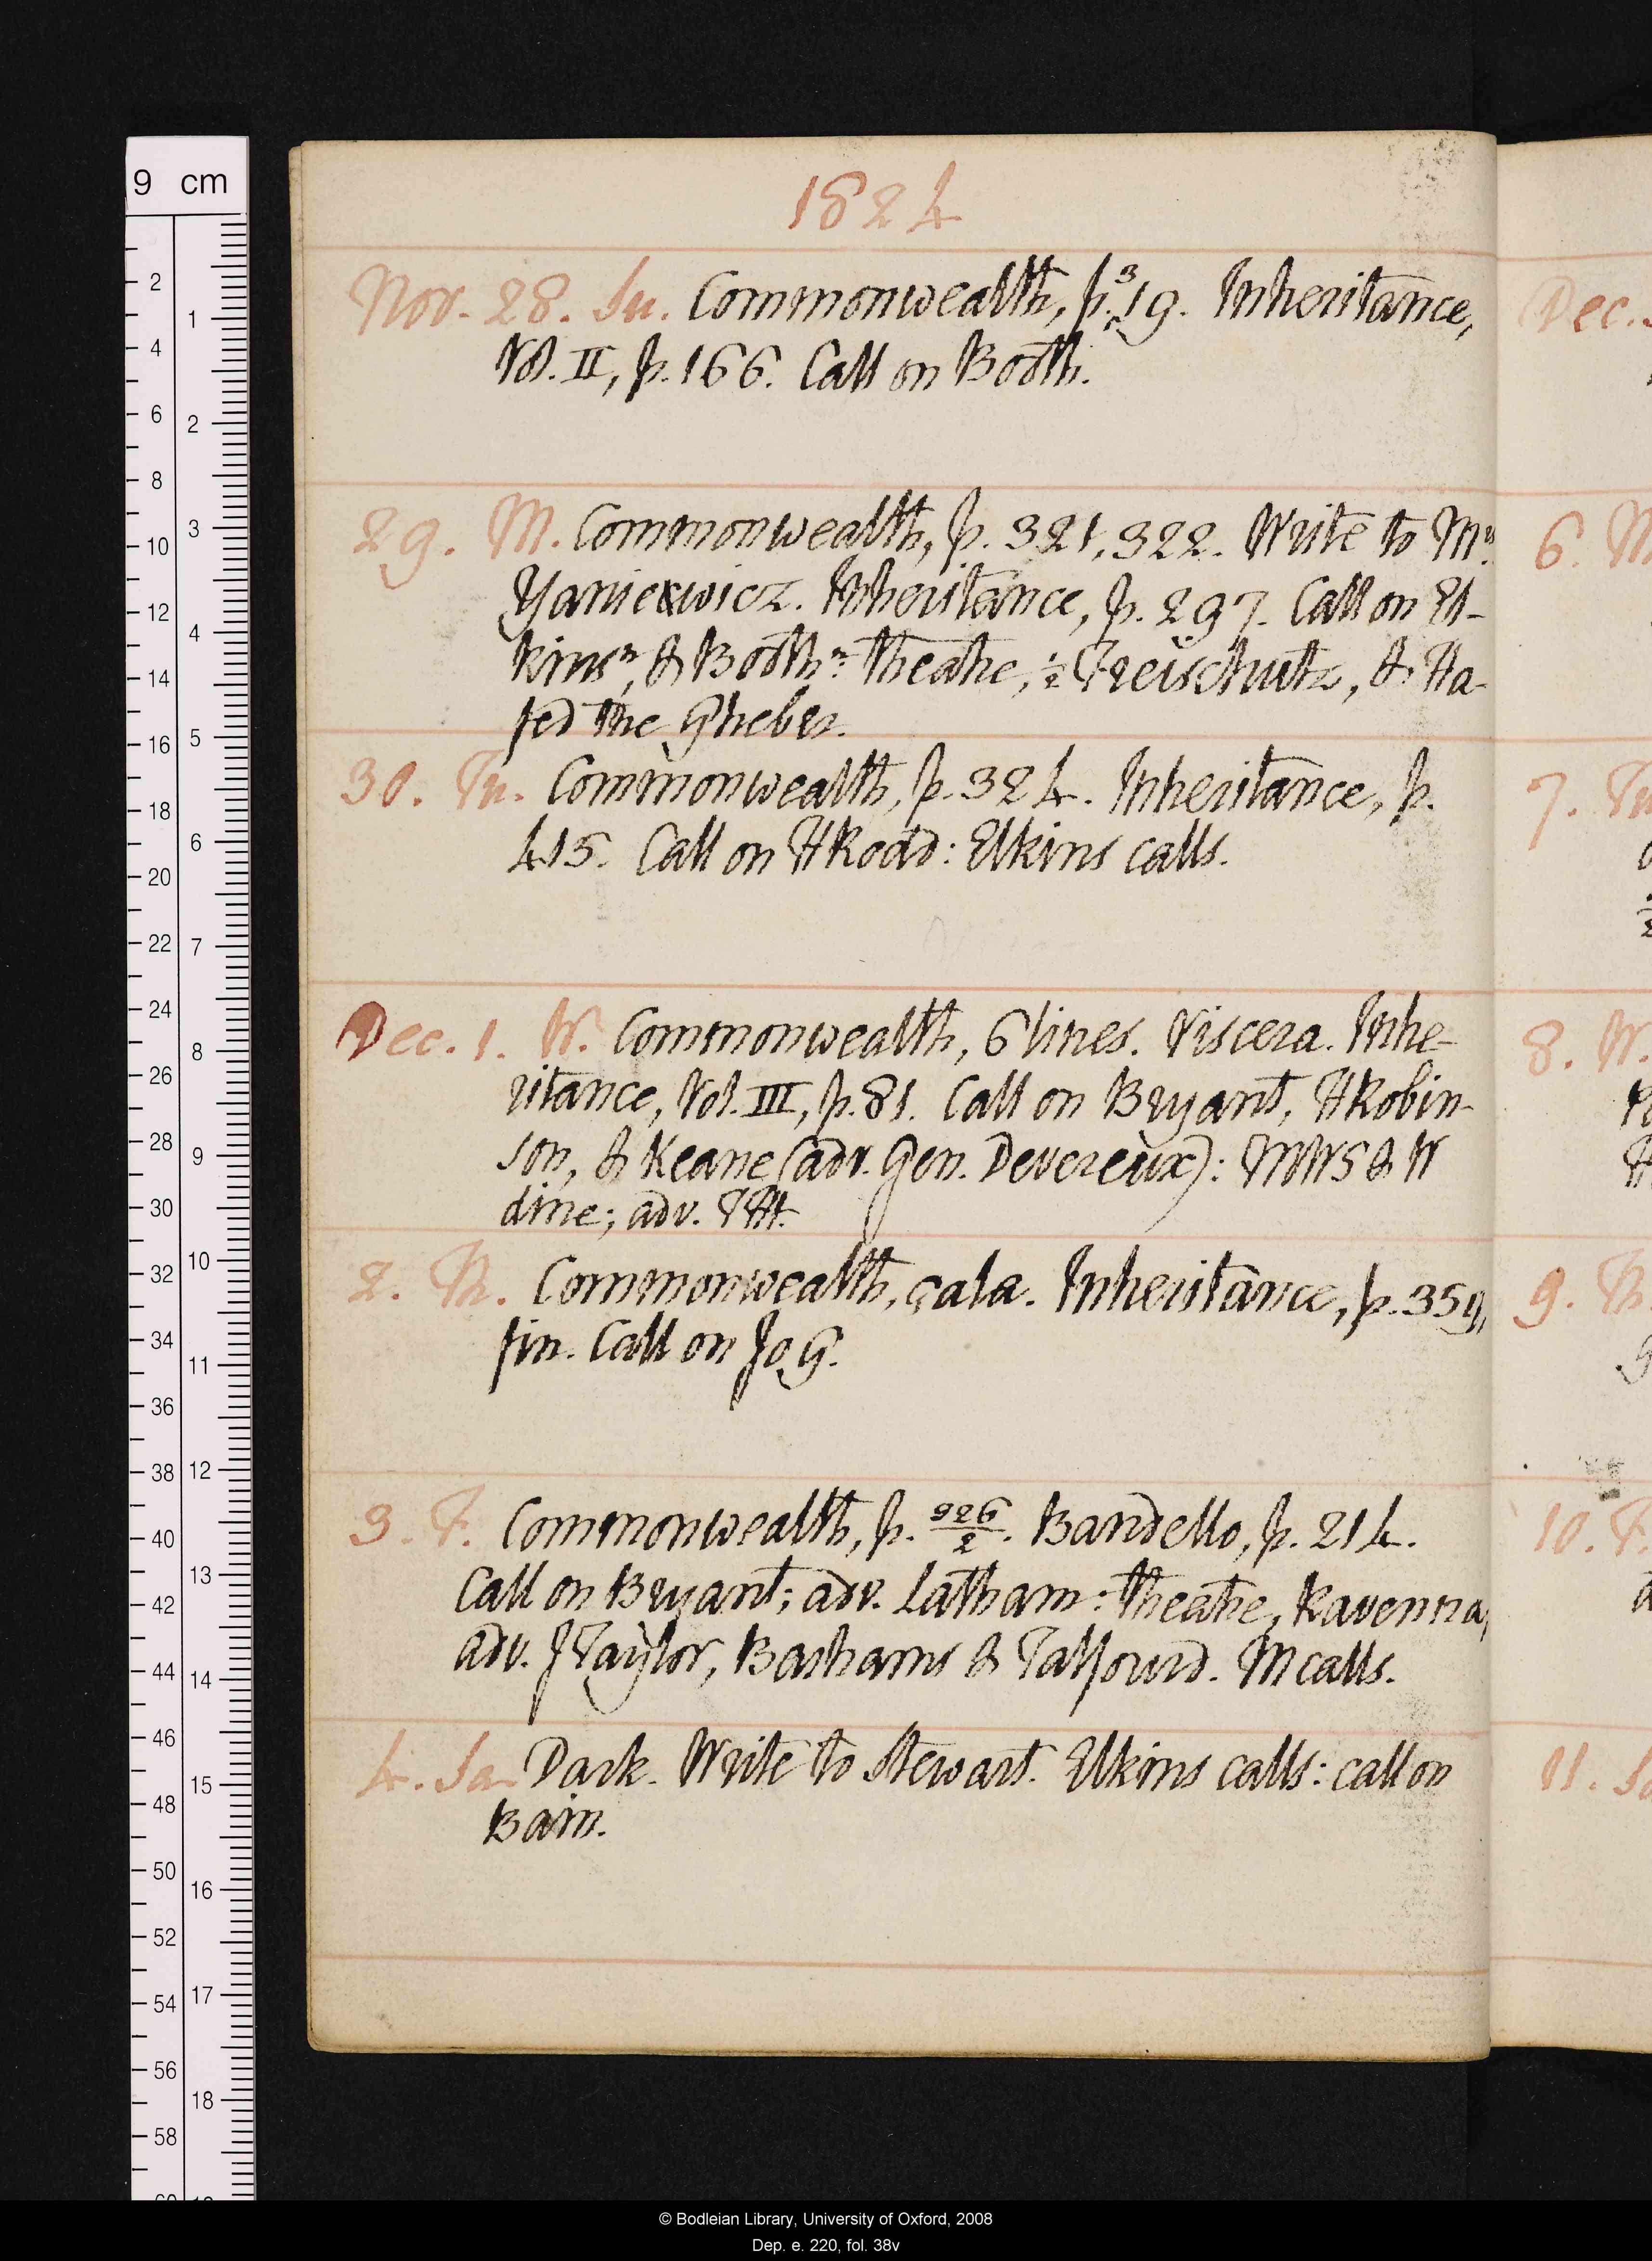 1824
Nov. 28. Su. Commonwealth, p. 319. Inheritance,
Vol. II, p. 166. Call on Booth.
29. M. Commonwealth, p. 321, 322. Write to Mrs
Yaniewicz. Inheritance, p. 297. Call on El-
kins n, & Booth n: theatre, ½ Freischutz, & Ha-
fed the Gheber.
30. Tu. Commonwealth, p. 324. Inheritance, p.
415. Call on HRodd: Elkins calls.
Dec. 1. W. Commonwealth, 6 lines. Viscera. Inhe-
ritance, Vol. III, p. 81. Call on Bryant, HRobin-
son, & Keane (adv. Gen. Devereux): MWS & W
dine; adv. TH.
2. Th. Commonwealth, çala. Inheritance, p. 359,
fin. Call on Jo G.
3. F. Commonwealth, p. 326/2. Bandello, p. 214.
Call on Bryant; adv. Latham: theatre, Ravenna,
adv. JTaylor, Bashams & Talfourd. M calls.
4. Sa. Dark. Write to Stewart. Elkins calls: call on
Bain.
Dec.
6. M
7. Tu
8. W.
9. Th
10. F.
11. Sa
9 cm
2
4
6
8
10
12
14
16
18
20
22
24
26
28
30
32
34
36
38
40
42
44
46
48
50
52
54
56
58
1
2
3
4
5
6
7
8
9
10
11
12
13
14
15
16
17
18
© Bodleian Library, University of Oxford, 2008
Dep. e. 220, fol. 38v